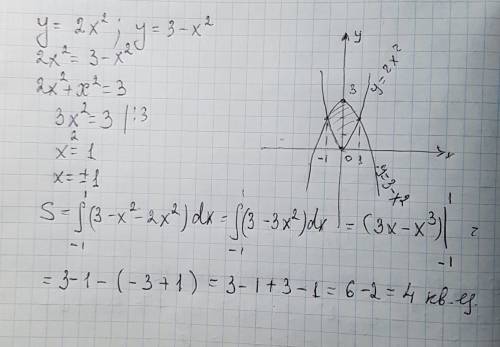 y = 2x² ; y = 3 - x²
2x² = 3 - x²
2x² + x² = 3
3x² = 3 | :3
x² = 1
x = ±1
y
3
y = 2x²
-1 0 1 x
y = 3 - x²
S = ∫₋₁¹ (3 - x² - 2x²) dx = ∫₋₁¹ (3 - 3x²) dx = (3x - x³) |₋₁¹ =
= 3 - 1 - (-3 + 1) = 3 - 1 + 3 - 1 = 6 - 2 = 4 кв. ед.